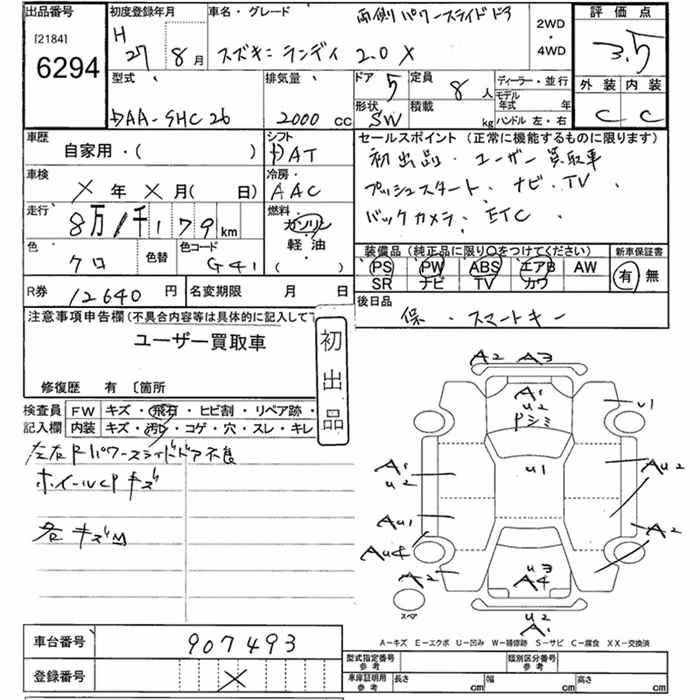 出品番号 初度登録年月 車名・グレード 両側パワースライドドア 評価点
[2184] 6294 H 27 8月 スズキ ランディ 2.0 X 2WD・4WD 3.5
型式 排気量 ドア 5 定員 8人 ディーラー・並行 外装 内装
DAA-SHC26 2000 cc 形状 SW 積載 kg モデル年式 年 ハンドル 左・右 C C
車歴 自家用・( ) シフト DAT セールスポイント (正常に機能するものに限ります)
初出品・ユーザー買取車
車検 X年X月( 日) 冷房 AAC プッシュスタート、ナビ・TV、
走行 8万1千179km 燃料 ガソリン 軽油 ( ) バックカメラ、ETC
色 クロ 色替 色コード G41 装備品 (純正品に限り○をつけてください) 新車保証書
PS PW ABS エアB AW 有 無
SR ナビ TV カワ
R券 12640円 名変期限 月 日 後日品
保・スマートキー
注意事項申告欄(不具合内容等は具体的に記入して下
ユーザー買取車
初出品
修復歴 有 〔箇所
検査員記入欄 FW キズ・飛石・ヒビ割・リペア跡・
内装 キズ・汚レ・コゲ・穴・スレ・キレ
左右Rパワースライドドア不良
ホイールCPキズ
キズM
A2 A3
A1
U2
U1
A1
U2
U1
AU2
AU1
A2
AU4
A2
U3
A4
スペア
U2
A1
A-キズ E-エクボ U-凹み W-補修跡 S-サビ C-腐食 XX-交換済
車台番号 907493
登録番号 X
型式指定番号 参考 類別区分番号 参考
車庫証明用 参考 長さ cm 幅 cm 高さ cm